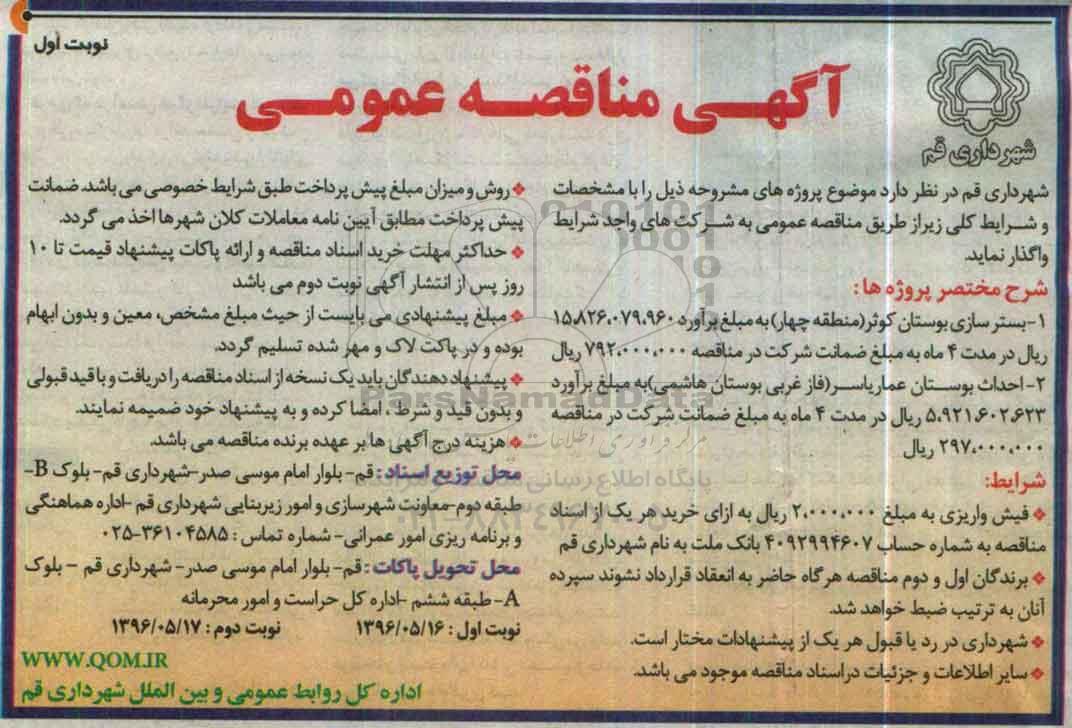 نوبت اول
آگهی مناقصه عمومی
شهرداری قم
شهرداری قم در نظر دارد موضوع پروژه های مشروحه ذیل را با مشخصات
و شرایط کلی زیر از طریق مناقصه عمومی به شرکت های واجد شرایط
واگذار نماید.
شرح مختصر پروژه ها:
۱-بستر سازی بوستان کوثر(منطقه چهار) به مبلغ برآورد ۱۵،۸۲۶،۰۷۹،۹۶۰
ریال در مدت ۴ ماه به مبلغ ضمانت شرکت در مناقصه ۷۹۲،۰۰۰،۰۰۰ ریال
۲- احداث بوستان عمار یاسر (فاز غربی بوستان هاشمی)به مبلغ برآورد
۵،۹۲۱،۶۰۲،۶۲۳ ریال در مدت ۴ ماه به مبلغ ضمانت شرکت در مناقصه
۲۹۷،۰۰۰،۰۰۰ ریال
شرایط:
فیش واریزی به مبلغ ۲،۰۰۰،۰۰۰ ریال به ازای خرید هر یک از اسناد
مناقصه به شماره حساب ۴۰۹۲۹۹۴۶۰۷ بانک ملت به نام شهرداری قم
برندگان اول و دوم مناقصه هرگاه حاضر به انعقاد قرارداد نشوند سپرده
آنان به ترتیب ضبط خواهد شد.
شهرداری در رد یا قبول هر یک از پیشنهادات مختار است.
سایر اطلاعات و جزئیات در اسناد مناقصه موجود می باشد.
روش و میزان مبلغ پیش پرداخت طبق شرایط خصوصی می باشد. ضمانت
پیش پرداخت مطابق آیین نامه معاملات کلان شهرها اخذ می گردد.
حداکثر مهلت خرید اسناد مناقصه و ارائه پاکات پیشنهاد قیمت تا ۱۰
روز پس از انتشار آگهی نوبت دوم می باشد
مبلغ پیشنهادی می بایست از حیث مبلغ مشخص، معین و بدون ابهام
بوده و در پاکت لاک و مهر شده تسلیم گردد.
پیشنهاد دهندگان باید یک نسخه از اسناد مناقصه را دریافت و با قید قبولی
و بدون قید و شرط ، امضا کرده و به پیشنهاد خود ضمیمه نمایند.
هزینه درج آگهی ها بر عهده برنده مناقصه می باشد.
محل توزیع اسناد: قم- بلوار امام موسی صدر-شهرداری قم- بلوک B-
طبقه دوم-معاونت شهرسازی و امور زیربنایی شهرداری قم -اداره هماهنگی
و برنامه ریزی امور عمرانی- شماره تماس : ۳۶۱۰۴۵۸۵-۰۲۵
محل تحویل پاکات: قم- بلوار امام موسی صدر- شهرداری قم - بلوک
A- طبقه ششم -اداره کل حراست و امور محرمانه
نوبت اول : ۱۳۹۶/۰۵/۱۶ نوبت دوم : ۱۳۹۶/۰۵/۱۷
WWW.QOM.IR
اداره کل روابط عمومی و بین الملل شهرداری قم
ParsNamadData